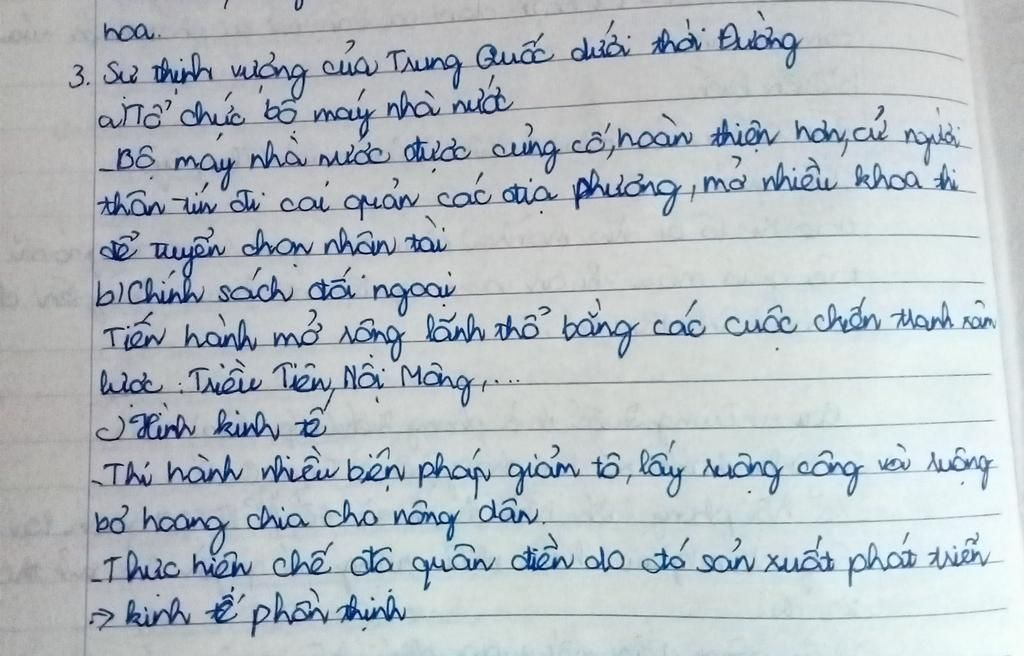 hoa.
3. Sự thịnh vượng của Trung Quốc dưới thời Đường
a) Tổ chức bộ máy nhà nước
_Bộ máy nhà nước được củng cố, hoàn thiện hơn, cử người
thân tín đi cai quản các địa phương, mở nhiều khoa thi
để tuyển chọn nhân tài
b) Chính sách đối ngoại
Tiến hành mở rộng lãnh thổ bằng các cuộc chiến tranh xâm
lược : Triều Tiên, Nội Mông,...
c) Hình kinh tế
_Thi hành nhiều biện pháp giảm tô, lấy ruộng công và ruộng
bỏ hoang chia cho nông dân.
_Thực hiện chế độ quân điền do đó sản xuất phát triển
=> kinh tế phồn thịnh